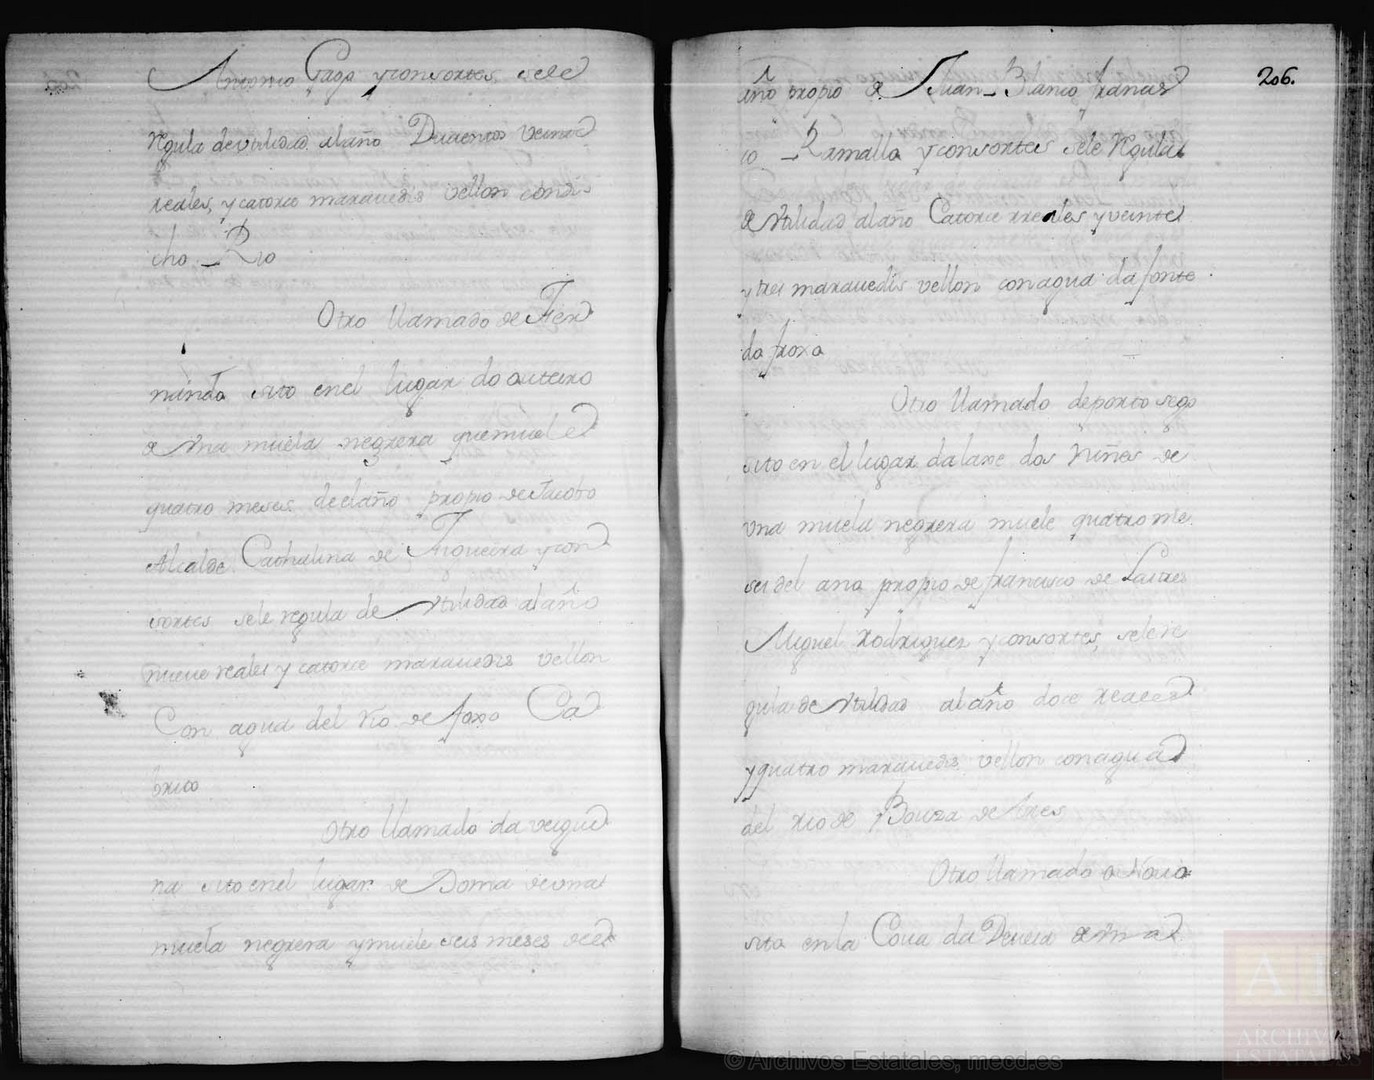 Antonio Gago y consortes sele
regula de utilidad al año Ducientos veinte
reales, y catorce maravedis vellon con di
cho Rio
Otro llamado de Fer
nanda sito enel lugar do outeiro
de Una muela negrera que muele
quatro meses de el año propio de Jacobo
Alcalde Cathalina de Figueira y con
sortes sele regula de Utilidad al año
nueve reales y catorce maravedis vellon
Con agua del rio de foxo Ca
brito
Otro llamado da veigui
na sito enel lugar de Doma de una
muela negrera y muele seis meses de el
206.
año propio de Juan Blanco francis
co Ramallo y consortes sele Regula
de Utilidad al año Catorce rreales y veinte
y tres maravedis vellon con agua da fonte
da froxa
Otro llamado de porto sego
sito en el lugar da laxe dos Niñes de
una muela negrera muele quatro me
ses del ano propio de francisco de
Miguel Rodriguez y consortes, sele re
gula de Utilidad al año doce reales
y quatro maravedis vellon con agua
del rio de Bouza de Ares
Otro llamado o Novo
sito en la Cova da Devesa de una
© Archivos Estatales, mecd.es
ARCHIVOS
ESTATALES